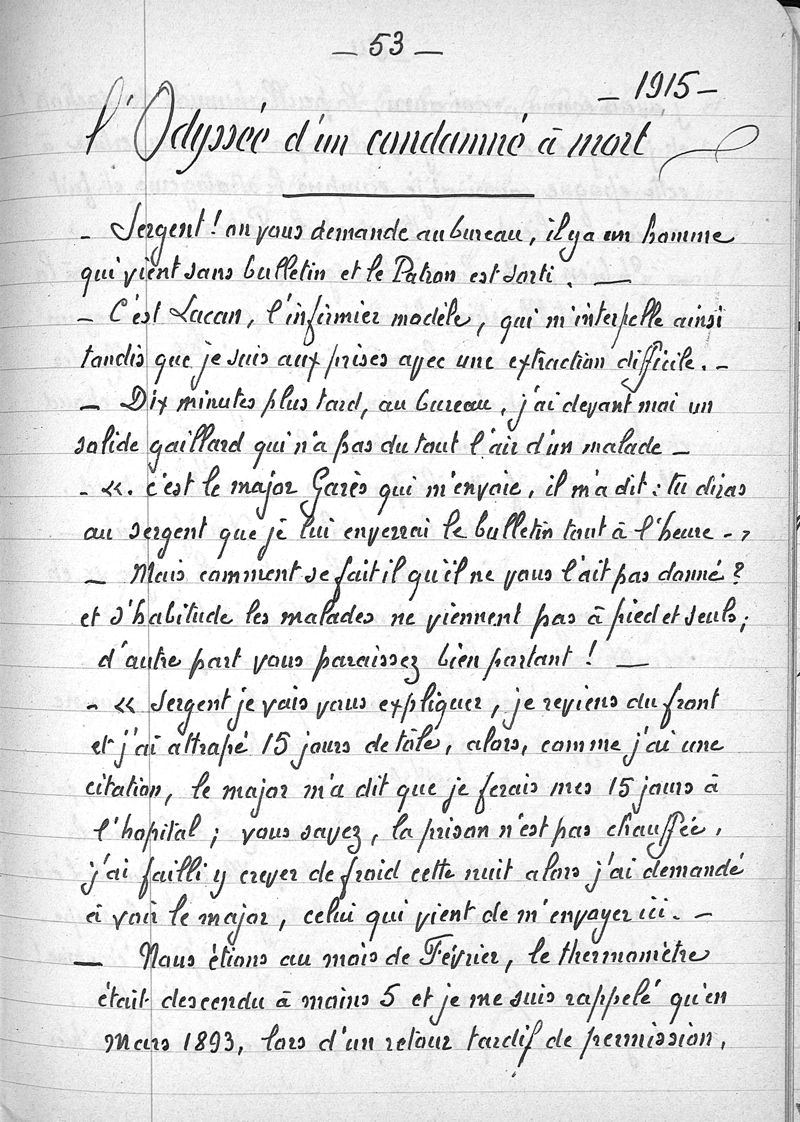 — 53 —
— 1915 —
l'Odyssée d'un condamné à mort
— Sergent! on vous demande au bureau, il y a un homme
qui vient sans bulletin et le Patron est sorti. —
— C'est Lacan, l'infirmier modèle, qui m'interpelle ainsi
tandis que je suis aux prises avec une extraction difficile. —
— Dix minutes plus tard, au bureau, j'ai devant moi un
solide gaillard qui n'a pas du tout l'air d'un malade —
- «. c'est le major Garès qui m'envoie, il m'a dit : tu diras
au sergent que je lui enverrai le bulletin tout à l'heure - ,
— Mais comment se fait il qu'il ne vous l'ait pas donné ?
et d'habitude les malades ne viennent pas à pied et seuls ;
d'autre part vous paraissez bien portant ! —
- « Sergent je vais vous expliquer, je reviens du front
et j'ai attrapé 15 jours de tôle, alors, comme j'ai une
citation, le major m'a dit que je ferais mes 15 jours à
l'hopital ; vous savez, la prison n'est pas chauffée,
j'ai failli y crever de froid cette nuit alors j'ai demandé
à voir le major, celui qui vient de m'envoyer ici. —
— Nous étions au mois de Février, le thermomètre
était descendu à moins 5 et je me suis rappelé qu'en
Mars 1893, lors d'un retour tardif de permission,